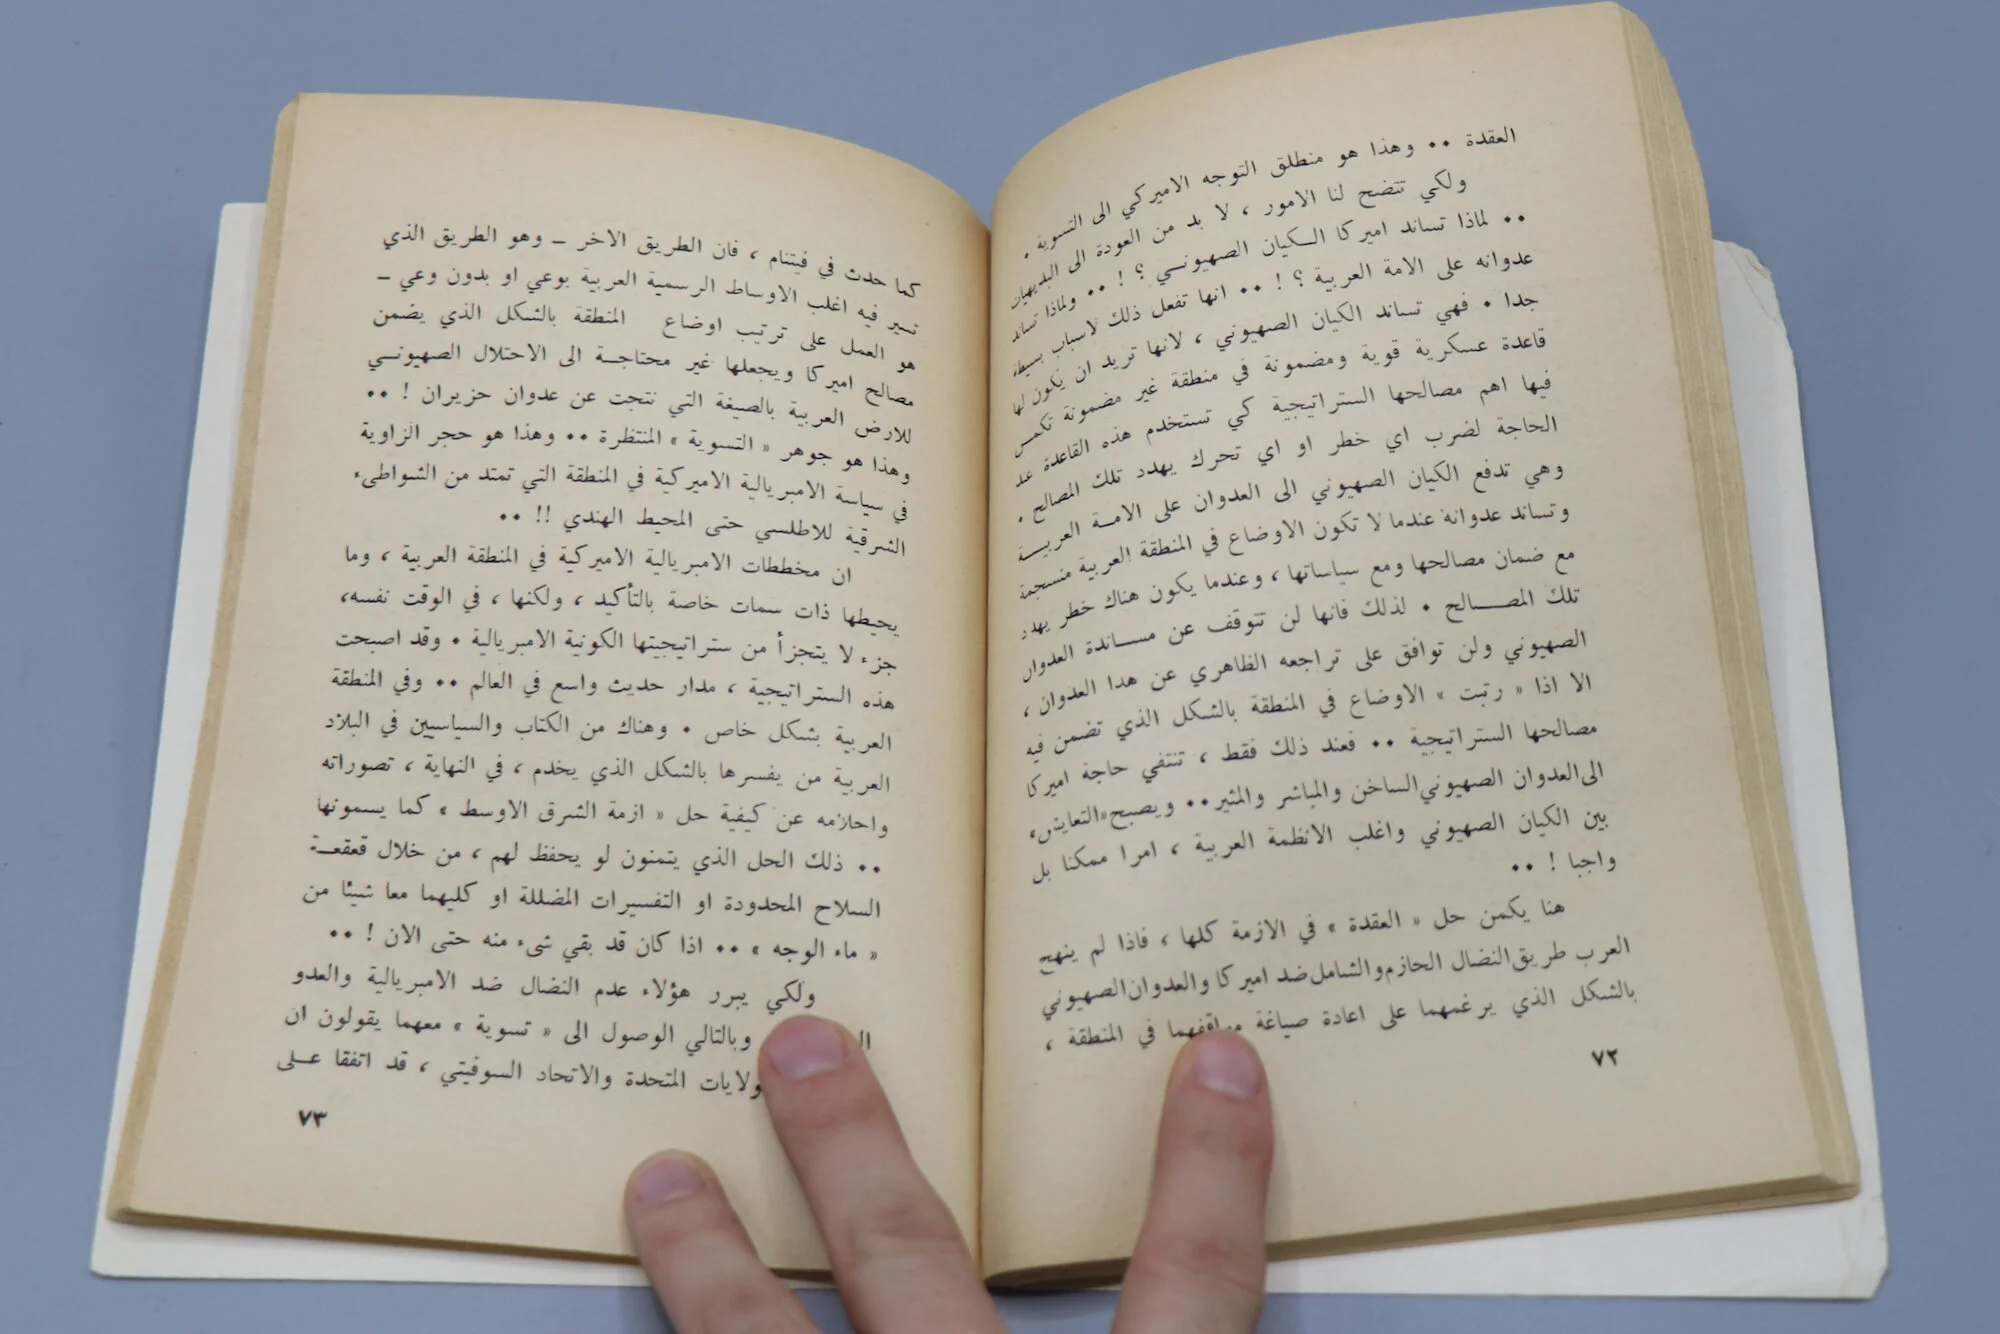 العقدة ٠٠ وهذا هو منطلق التوجه الاميركي الى التسوية ٠
ولكي تتضح لنا الامور ، لا بد من العودة الى البديهيات
٠٠ لماذا تساند اميركا الكيان الصهيوني ؟ ! ٠٠ ولماذا تساند
عدوانه على الامة العربية ؟ ! ٠٠ انها تفعل ذلك لاسباب بسيطة
جدا ٠ فهي تساند الكيان الصهيوني ، لانها تريد ان يكون لها
قاعدة عسكرية قوية ومضمونة في منطقة غير مضمونة تكمن
فيها اهم مصالحها الستراتيجية كي تستخدم هذه القاعدة عند
الحاجة لضرب اي خطر او اي تحرك يهدد تلك المصالح ٠
وهي تدفع الكيان الصهيوني الى العدوان على الامة العربية
وتساند عدوانه عندما لا تكون الاوضاع في المنطقة العربية منسجمة
مع ضمان مصالحها ومع سياساتها ، وعندما يكون هناك خطر يهدد
تلك المصالح ٠ لذلك فانها لن تتوقف عن مساندة العدوان
الصهيوني ولن توافق على تراجعه الظاهري عن هدا العدوان ،
الا اذا « رتبت » الاوضاع في المنطقة بالشكل الذي تضمن فيه
مصالحها الستراتيجية ٠٠ فعند ذلك فقط ، تنتفي حاجة اميركا
الى العدوان الصهيوني الساخن والمباشر والمثير ٠٠ ويصبح «التعايش»
بين الكيان الصهيوني واغلب الانظمة العربية ، امرا ممكنا بل
واجبا ! ٠٠
هنا يكمن حل « العقدة » في الازمة كلها ، فاذا لم ينهج
العرب طريق النضال الحازم والشامل ضد اميركا والعدوان الصهيوني
بالشكل الذي يرغمهما على اعادة صياغة مواقفهما في المنطقة ،
٧٢
كما حدث في فيتنام ، فان الطريق الاخر ــ وهو الطريق الذي
تسير فيه اغلب الاوساط الرسمية العربية بوعي او بدون وعي ــ
هو العمل على ترتيب اوضاع المنطقة بالشكل الذي يضمن
مصالح اميركا ويجعلها غير محتاجة الى الاحتلال الصهيوني
للارض العربية بالصيغة التي نتجت عن عدوان حزيران ! ٠٠
وهذا هو جوهر « التسوية » المنتظرة ٠٠ وهذا هو حجر الزاوية
في سياسة الامبريالية الاميركية في المنطقة التي تمتد من الشواطىء
الشرقية للاطلسي حتى المحيط الهندي !! ٠٠
ان مخططات الامبريالية الاميركية في المنطقة العربية ، وما
يحيطها ذات سمات خاصة بالتأكيد ، ولكنها ، في الوقت نفسه،
جزء لا يتجزأ من ستراتيجيتها الكونية الامبريالية ٠ وقد اصبحت
هذه الستراتيجية ، مدار حديث واسع في العالم ٠٠ وفي المنطقة
العربية بشكل خاص ٠ وهناك من الكتاب والسياسيين في البلاد
العربية من يفسرها بالشكل الذي يخدم ، في النهاية ، تصوراته
واحلامه عن كيفية حل « ازمة الشرق الاوسط » كما يسمونها
٠٠ ذلك الحل الذي يتمنون لو يحفظ لهم ، من خلال قعقعة
السلاح المحدودة او التفسيرات المضللة او كليهما معا شيئا من
« ماء الوجه » ٠٠ اذا كان قد بقي شىء منه حتى الان ! ٠٠
ولكي يبرر هؤلاء عدم النضال ضد الامبريالية والعدو
وبالتالي الوصول الى « تسوية » معهما يقولون ان
ولايات المتحدة والاتحاد السوفيتي ، قد اتفقا على
٧٣